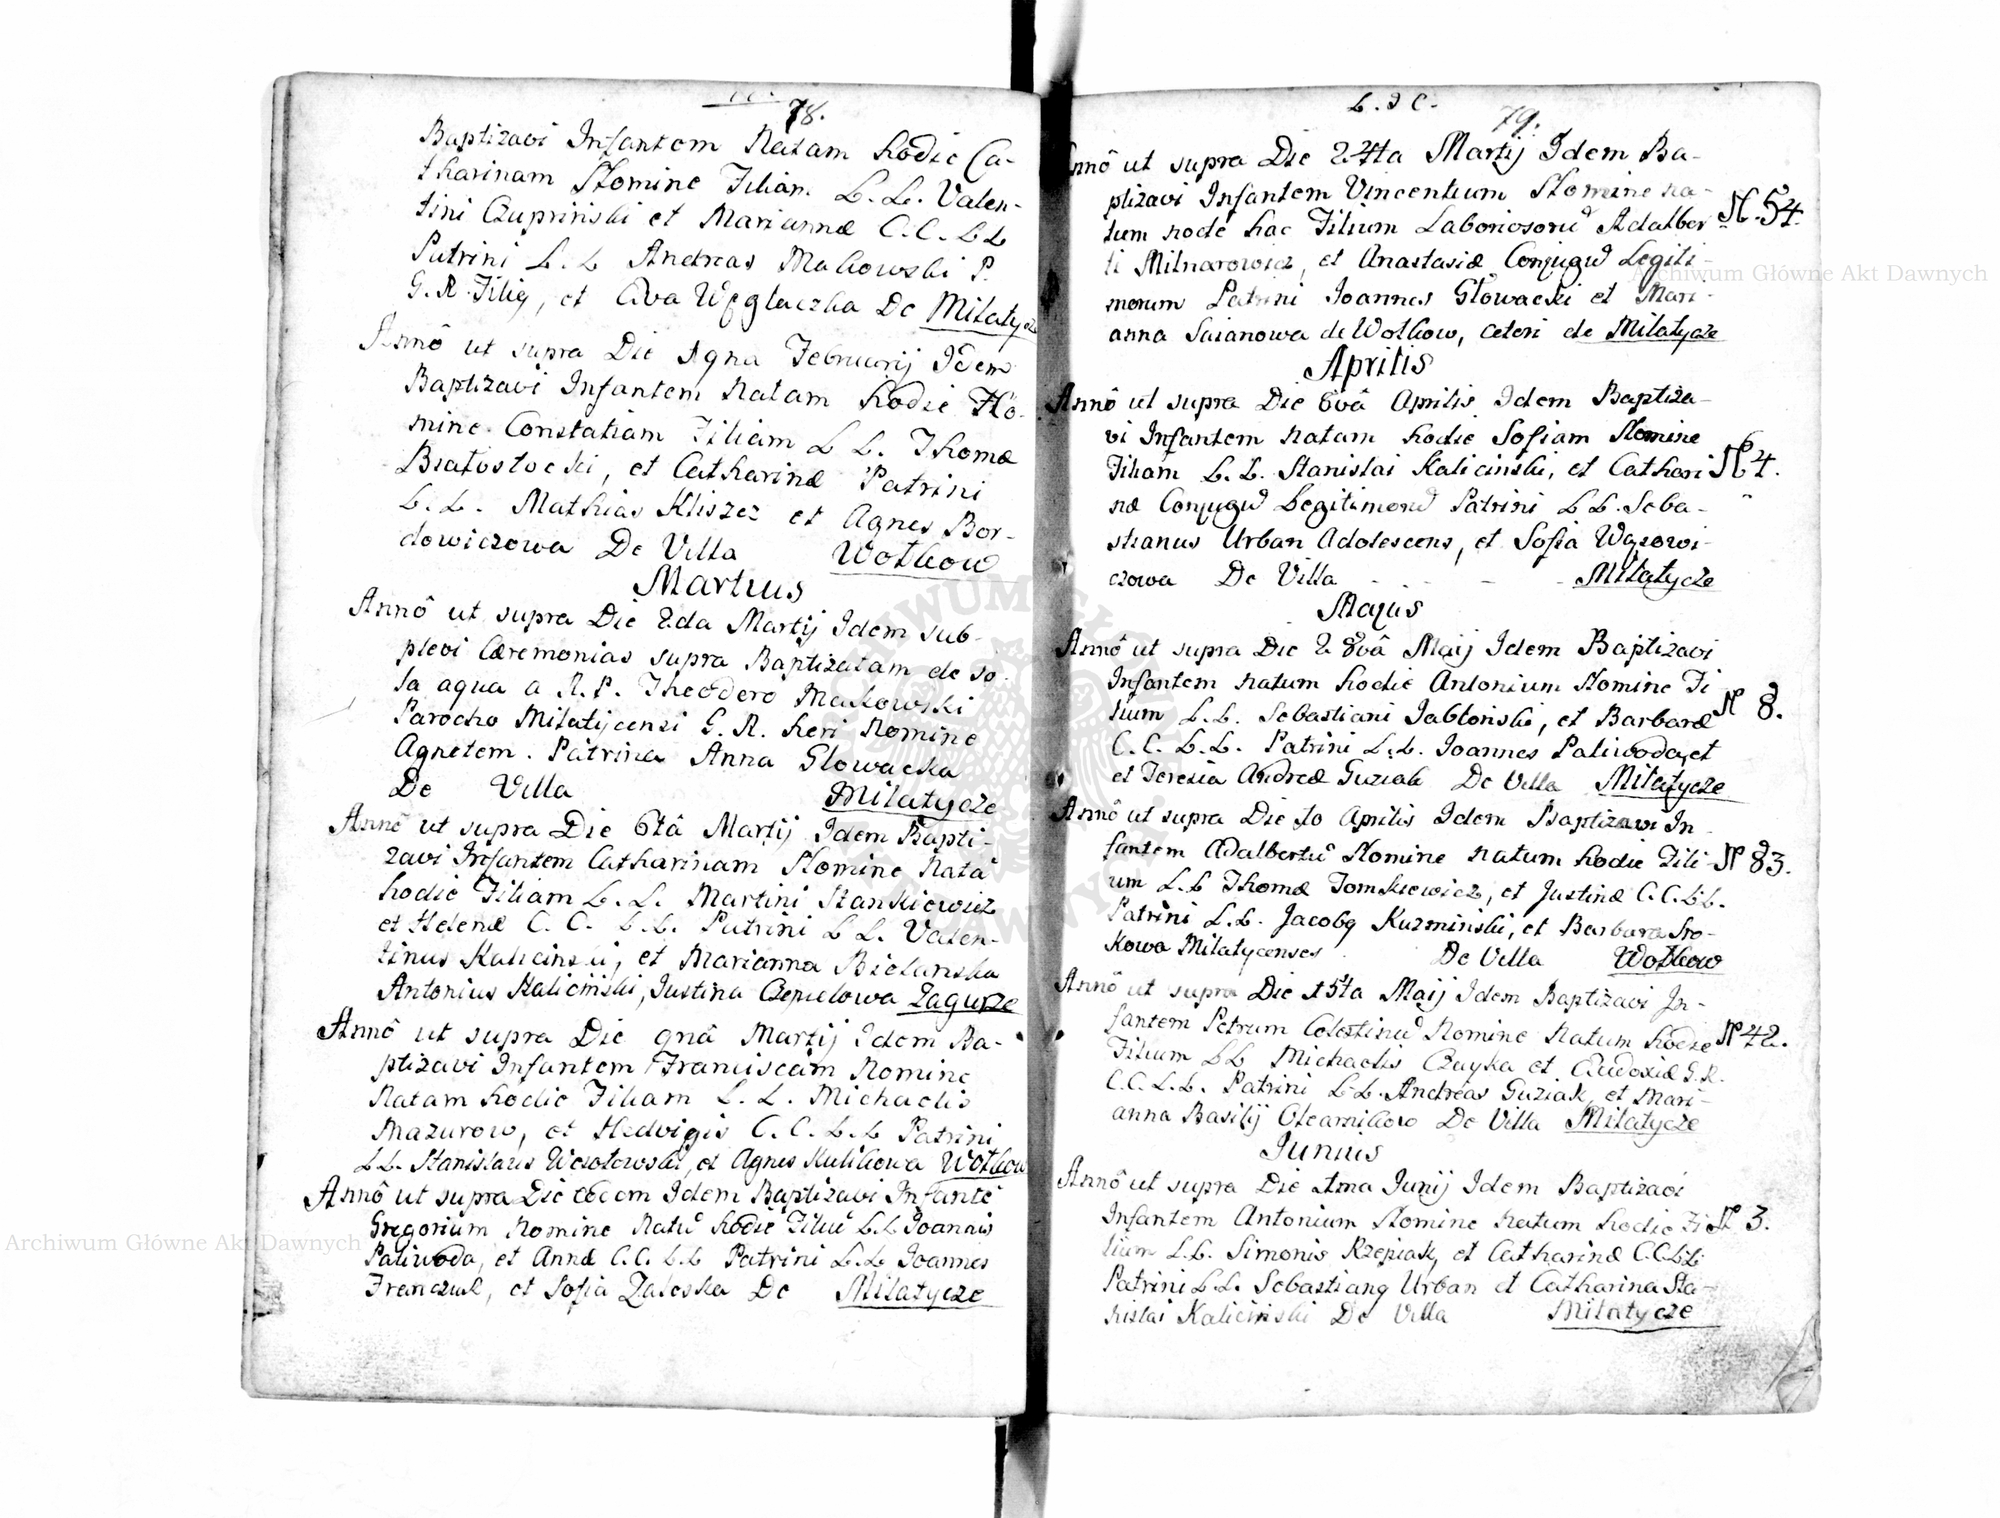 78.
Baptizavi Infantem Natam hodie Ca-
tharinam Nomine Filiam L. L. Valen-
tini Czupriński et Mariannæ C. C. L L
Patrini L. L Andreas Makowski P.
G. R. Filiq, et Eva Węglaczka De Milatycze
Annô ut supra Die Februarij Idem
Baptizavi Infantem Natam hodie No-
mine Constatiam Filiam L L. Thomæ
Białostocki, et Catharinæ Patrini
L. L. Mathias Kliszcz et Agnes Bor-
dowiczowa De Villa Wołkow
Martius
Annô ut supra Die 2da Martij Idem sub-
plevi Cæremonias supra Baptizatam de so-
la aqua a R. P. Theodoro Makowski
Parocho Milatycensi G. R. heri Nomine
Agnetem. Patrina Anna Głowacka
De Villa Milatycze
Annô ut supra Die 6tâ Martij Idem Bapti-
zavi Infantem Catharinam Nomine Natã
hodie Filiam L. L. Martini Stankiewicz
et Helenæ C. C. L. L. Patrini L L. Valen-
tinus Kaliciński, et Marianna Bielanska
Antonius Kaliciński, Justina Czepielowa Zagurze
Annô ut supra Die 9nâ Martij Idem Ba-
ptizavi Infantem Franciscam Nomine
Natam hodie Filiam L. L. Michaelis
Mazurow, et Hedvigis C. C. L. L Patrini
LL. Stanislaus Wesołowski, et Agnes Kulikowa Wołkow
Annô ut supra Die eodem Idem Baptizavi Infantẽ
Gregorium Nomine Natũ hodie Filiũ L.L Joannis
Paliwoda, et Annæ C.C. L.L Patrini L.L Joannes
Franczuk, et Sofia Zaleska De Milatycze
79.
Annô ut supra Die 24ta Martij Idem Ba-
ptizavi Infantem Vincentium Nomine na-
tum hode hac Filium Laboriosorũ Adalber N. 54.
ti Milnarowicz, et Anastasiæ Conjugũ Legiti-
morum Patrini Joannes Głowacki et Mari-
anna Saianowa de Wołkow, ceteri de Milatycze
Aprilis
Annô ut supra Die 8vâ Aprilis Idem Baptiza-
vi Infantem Natam hodie Sofiam Nomine
Filiam L. L. Stanislai Kaliciński, et Cathari N 4.
næ Conjugũ Legitimorũ Patrini L L. Seba-
stianus Urban Adolescens, et Sofia Wąsowi-
czowa De Villa - - - - Milatycze
Majus
Annô ut supra Die 28vâ Maij Idem Baptizavi
Infantem natum hodie Antonium Nomine Fi
lium L. L. Sebastiani Jabłoński, et Barbaræ N 8.
C. C. L. L. Patrini L. L. Joannes Paliwoda, et
et Teresia Andreæ Guziak De Villa Milatycze
Annô ut supra Die Aprilis Idem Baptizavi In-
fantem Adalbertũ Nomine Natum hodie Fili- N 83.
um L.L Thomæ Tomkiewicz, et Justinæ C.C. L.L.
Patrini L.L. Jacobq Kuzmiński, et Barbara Sro-
kowa Milatycenses De Villa Wołkow
Annô ut supra Die 15ta Maij Idem Baptizavi In-
fantem Petrum Celestinũ Nomine Natum hodie N 42.
Filium LL Michaelis Czayka et Eudoxiæ G. R.
C.C. L.L. Patrini L.L. Andreas Guziak, et Mari-
anna Basilij De Villa Milatycze
Junius
Annô ut supra Die 1ma Junij Idem Baptizavi
Infantem Antonium Nomine Natum hodie Fi N 3.
lium L.L. Simonis Rzepiak, et Catharinæ C.C L.L
Patrini L.L. Sebastianq Urban et Catharina Sta-
nislai Kaliciński De Villa Milatycze
Archiwum Główne Akt Dawnych
Archiwum Główne Akt Dawnych